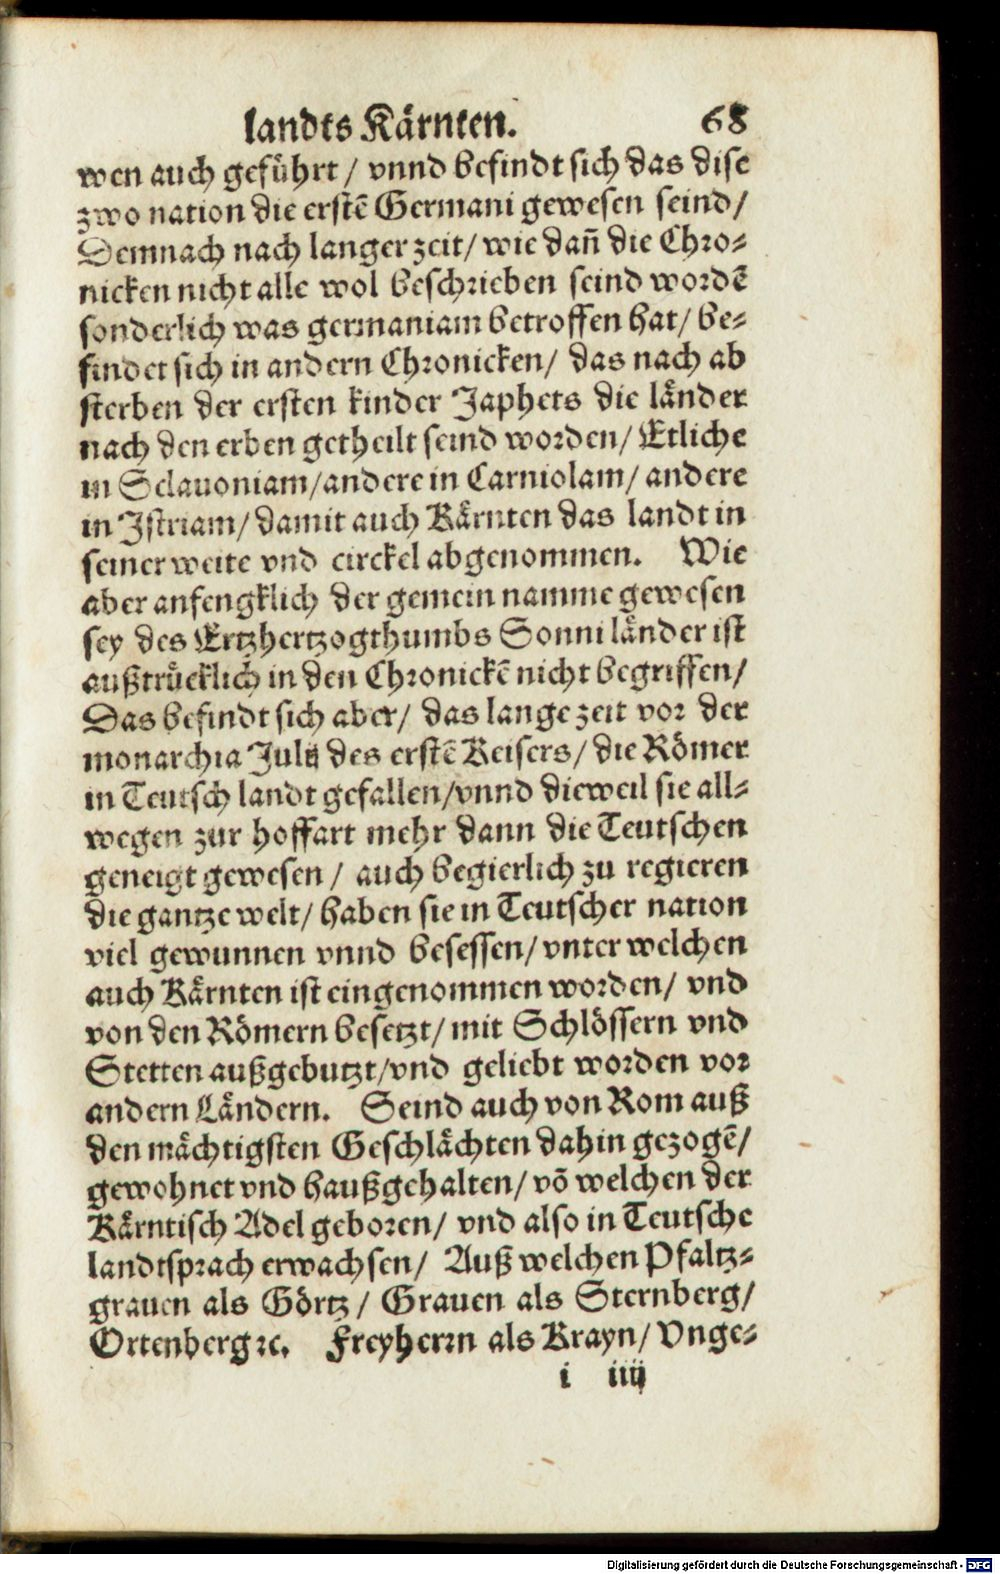 landts Kärnten. 68
wen auch geführt / vnnd befindt sich das dise
zwo nation die erstẽ Germani gewesen seind /
Demnach nach langer zeit / wie dañ die Chro-
nicken nicht alle wol beschrieben seind wordẽ
sonderlich was germaniam betroffen hat / be-
findet sich in andern Chronicken / das nach ab
sterben der ersten kinder Japhets die länder
nach den erben getheilt seind worden / Etliche
in Sclauoniam / andere in Carniolam / andere
in Istriam / damit auch Kärnten das landt in
seiner weite vnd circkel abgenommen. Wie
aber anfengklich der gemein namme gewesen
sey des Ertzhertzogthumbs Sonni länder ist
außtrücklich in den Chronickẽ nicht begriffen /
Das befindt sich aber / das lange zeit vor der
monarchia Julij des erstẽ Keisers / die Römer
in Teutsch landt gefallen / vnnd dieweil sie all-
wegen zur hoffart mehr dann die Teutschen
geneigt gewesen / auch begierlich zu regieren
die gantze welt / haben sie in Teutscher nation
viel gewunnen vnnd besessen / vnter welchen
auch Kärnten ist eingenommen worden / vnd
von den Römern besetzt / mit Schlössern vnd
Stetten außgebutzt / vnd geliebt worden vor
andern Ländern. Seind auch von Rom auß
den mächtigsten Geschlächten dahin gezogẽ /
gewohnet vnd haußgehalten / võ welchen der
Kärntisch Adel geboren / vnd also in Teutsche
landtsprach erwachsen / Auß welchen Pfaltz-
grauen als Görtz / Grauen als Sternberg /
Ortenberg ꝛc. Freyherrn als Krayn / Vnge-
i iiij
Digitalisierung gefördert durch die Deutsche Forschungsgemeinschaft - DFG